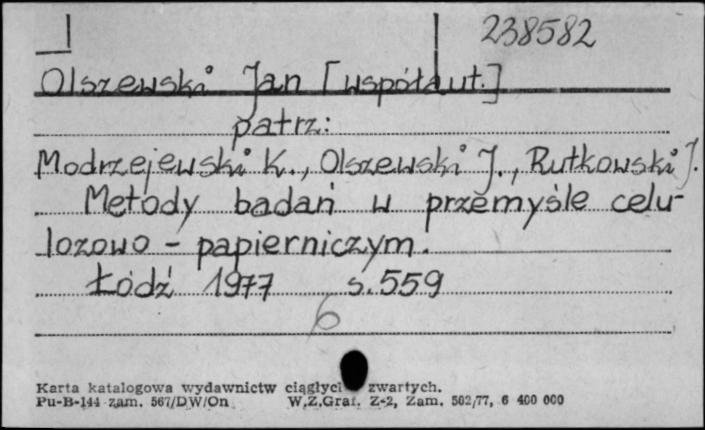 238582
Olszewski Jan [współaut.]
patrz:
Modrzejewski K., Olszewski J., Rutkowski J.
Metody badań w przemyśle celu-
lozowo - papierniczym.
Łódź 1977 s.559
6
Karta katalogowa wydawnictw ciągłyci zwartych.
Pu-B-144 zam. 567/DW/On W.Z.Graf. Z-2, Zam. 502/77, 6 400 000